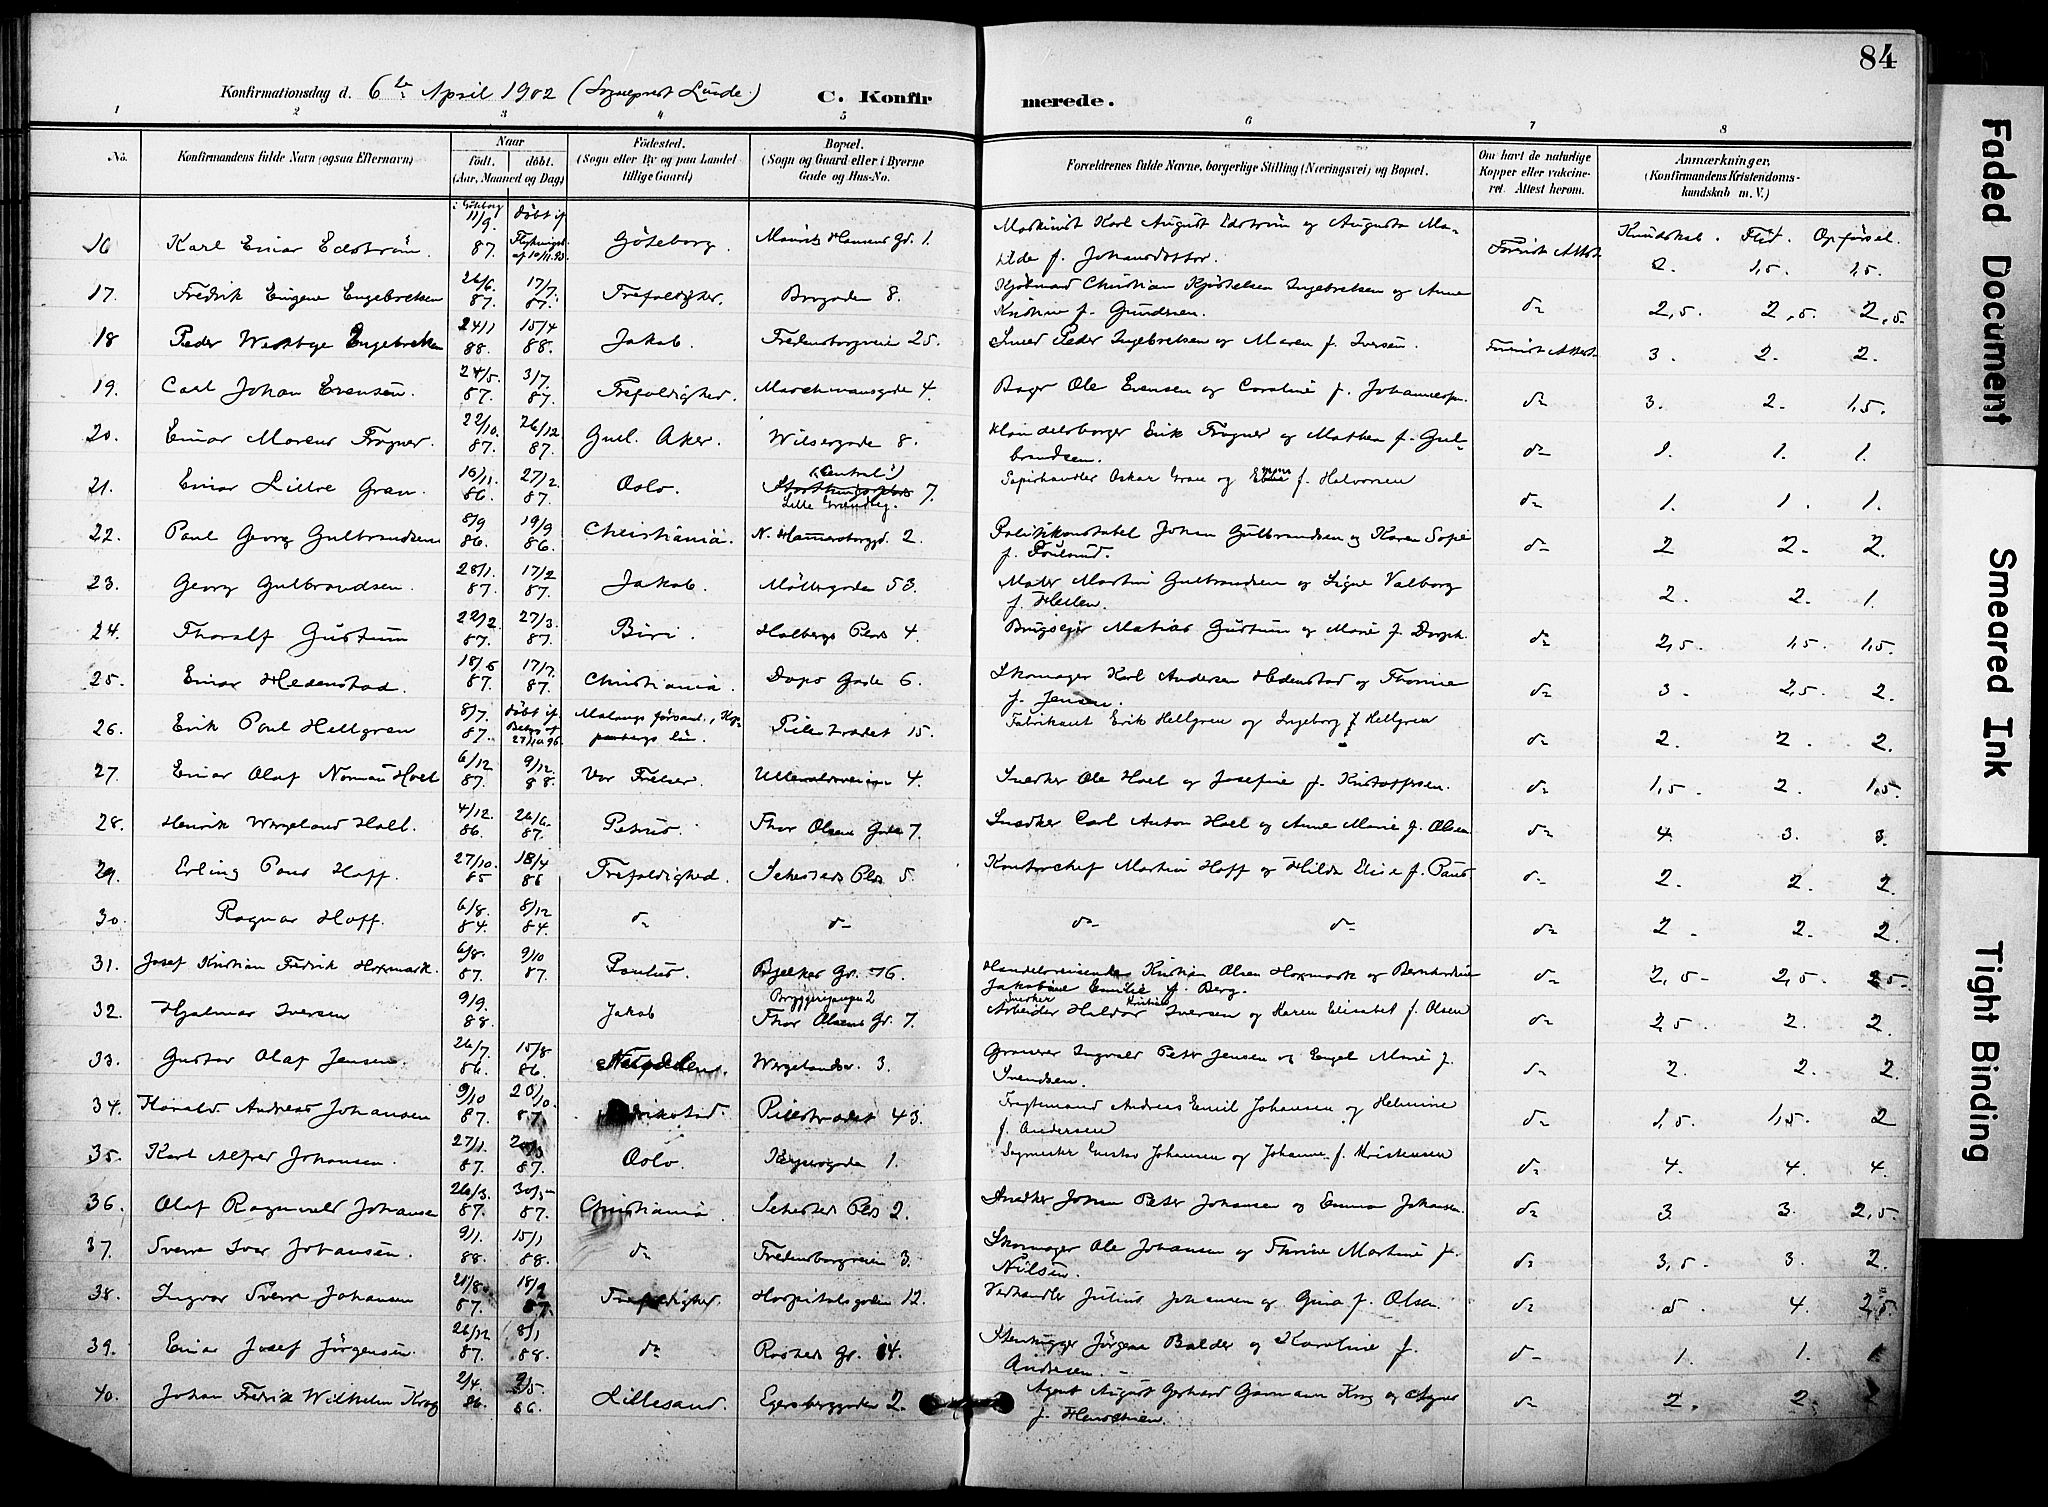 84
Konfirmationsdag d. 6te April 1902 (Sogneprest Lunde.) C. Konfirmerede.
1 2 3 4 5 6 7 8
No. Konfirmandens fulde Navn (ogsaa Efternavn) Naar födt. döbt. (Aar, Maaned og Dag) Födested. (Sogn eller By og paa Landet tillige Gaard) Bopæl. (Sogn og Gaard eller i Byerne Gade og Hus-No. Forældrenes fulde Navne, borgerlige Stilling (Næringsvei) og Bopæl. Om havt de naturlige Kopper eller vakcineret. Attest herom. Anmærkninger, (Konfirmandens Kristendomskundskab m. V.)
Kundskab. Flid. Opförsel.
16 Karl Einar Edström. i Göteborg 11/9. 87. Döbt if. af 10/11.93 Göteborg. Maurits Hansens Gd. 1. Maskinist Karl August Edström og Augusta Matilde f. Johansdotter. Forevist Attest 2. 1,5. 1,5.
17. Fredrik Eugene Engebretsen 26/6. 87. 17/7. 87. Trefoldighed. Brogaden 8. Christian Ingebretsen og Anne Kristine f. Gundersen. do 2,5. 2,5. 2,5.
18 Peder Engebretsen 24/1 88. 15/4 88. Jakob. Fredensborgveien 25. Smed Peder Ingebretsen og Maren f. Iversen. Forevist Attest 3. 2. 2.
19. Carl Johan Evensen. 24/5. 87. 3/7. 87. Trefoldighed. gade 4. Bager Ole Evensen og Caroline f. do 3. 2. 1,5.
20. Einar Marenus Frogner. 22/10. 87. 26/12. 87. Gml. Aker. Wilsesgade 8. Handelsborger Erik Frogner og Mathea f. Gulbrandsen. do 1. 1. 1.
21. Einar Lillre Gran. 16/11. 86. 27/2. 87. Oslo. (Central) Stortingsplads 7. Lille Oskar Gran og f. Halvorsen do 1. 1. 1.
22. Paul Georg Gulbrandsen 8/9 86. 19/9 86. Christiania. N. Hammersborggd. 2. Politikonstabel Johan Gulbrandsen og Karen Sofie f. do 2 2. 2.
23. Georg Gulbrandsen. 28/1. 87. 17/2 87. Jakob. Möllergaden 53. Maler Martin Gulbrandsen og Signe Valborg f. Hellen. 2. 2. 1.
24. Thoralf Gustum 22/2. 87. 27/3. 87. Biri. Holbergs Plads 4. Brugseier Matias Gustum og Marie f. do 2,5. 1,5. 1,5.
25. Einar Hedenstad. 18/6 87. 17/7. 87. Christiania. Dops Gade 6. Skomager Karl Andersen Hedenstad og Thomine f. Jensen. do 3. 2,5. 2.
26. Erik Paul Hellgren 8/7. 87. Döbt if. 27/10.96. Malungs församl., Kopparbergs län. Pilestrædet 15. Fabrikant Erik Hellgren og Ingeborg f Hellgren do 2. 2. 2.
27. Einar Olaf Noman Hoel 6/12 87. 9/12 88. Vor Frelser. Ullevoldsveien 4. Snedker Ole Hoel og Josefine f. Kristoffersen. do 1,5. 2. 1,5.
28. Henrik Wergeland Holl. 4/12. 86. 26/6. 87. Petrus. Thor Olsens Gade 7. Snedker Carl Anton Hoel og Anne Marie f. Olsen do 4. 3. 3.
29. Erling Paus Hoff. 27/10. 85 18/4 86 Trefoldighed. Sehesteds Plads 5. Kontorchef Martin Hoff og Hilda Elise f. Paus do 2. 2. 2.
30. Ragnar Hoff. 6/8. 84. 8/12 84. do do do do do 2. 2. 2.
31. Josef Kristian Fredrik Hoxmark. 6/8. 87. 9/10 87. Paulus. Bjelkes Gd. 16. Handelsreisende Kristian Olsen Hoxmark og Bernhardine Jakobine Emilie f. Berg. do 2,5. 2,5. 2,5.
32. Hjalmar Iversen 9/9. 88. Jakob 2 Thor Olsens Gd. 7. Snekker Arbeider Haldor Kristian Iversen og Karen Elisabet f. Olsen do 2,5. 2. 2.
33. Gustav Olaf Jensen. 26/7. 86. 15/8 86. Wergelandsv. 3. Graverer Ingvald Peter Jensen og Engel Marie f. Svendsen. do 2. 2. 2.
34. Harald Andreas Johansen 9/10 87. 20/10. 87. Fredrikstad. Pilestrædet 43. Fragtemand Andreas Emil Johansen og Helmine f. Andersen do 1,5. 1,5. 2
35. Karl Alfred Johansen. 27/1. 87. 87. Oslo. Keysersgade 1. Gustav Johansen og Johanne f. Kristensen do 4. 4. 4.
36. Olaf Ragnvald Johansen 26/3. 87. 30/5 87. Christiania. Sehesteds Plads 2. Snedker Johan Peter Johansen og Emma Johansen. do 3. 3. 2,5.
37. Sverre Ivar Johansen. 9/1. 88. 15/1 88. do Fredensborgveien 3. Skomager Ole Johansen og Thrine Martine f. Nilsen. do 3,5. 3. 2.
38. Ingvar Sverre Johansen 21/8. 87. 18/9 87. Trefoldighed. Hospitalsgaden 12. Vedhandler Julius Johansen og Gina f. Olsen. do 5. 4. 2,5.
39. Einar Josef Jörgensen. 26/12 87. 8/1 88. do Rosteds Gd. 14. Stenhugger Jörgen Balder og Karoline f. Andresen. do 1. 1. 1
40. Johan Fredrik Wilhelm Krog 2/4. 86. 9/5. 86. Lillesand. Egersberggaden 2. Agent August Gerhard Garmann Krog og Agnes f. Henschien. do 2. 2. 2
Faded Document
Smeared Ink
Tight Binding